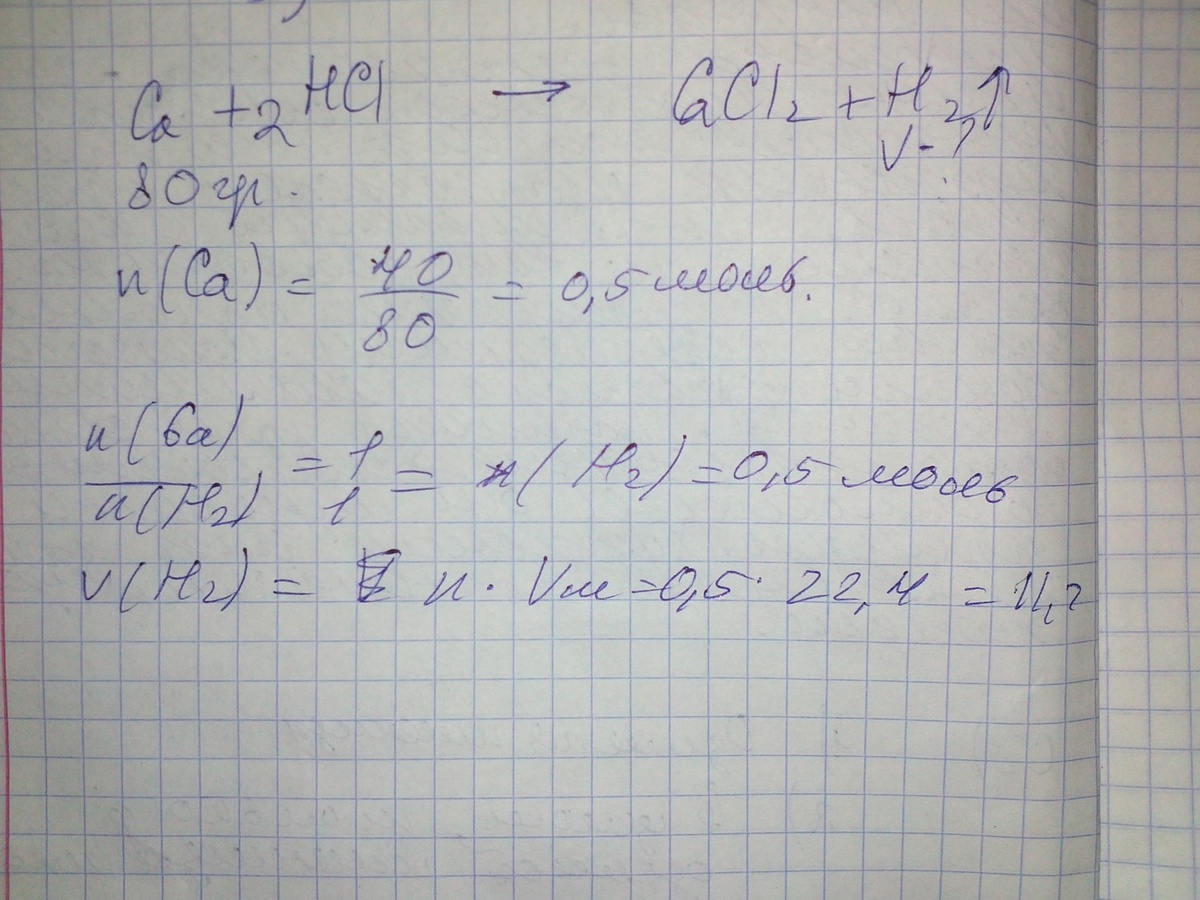 Ca + 2HCl → CaCl2 + H2↑
80 гр. V-?
n(Ca) = 40/80 = 0,5 моль.
n(Ca)/n(H2) = 1/1 = n(H2) = 0,5 моль
V(H2) = n · Vм = 0,5 · 22,4 = 11,2